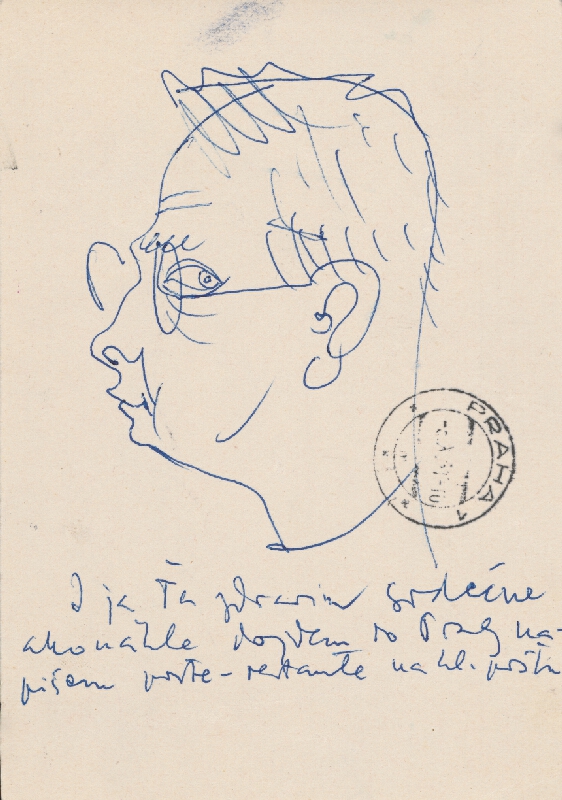 PRAHA 1
I ja Ťa zdravím srdečne
akonáhle dojdem do Prahy na-
píšem poste-restante na hl. poštu